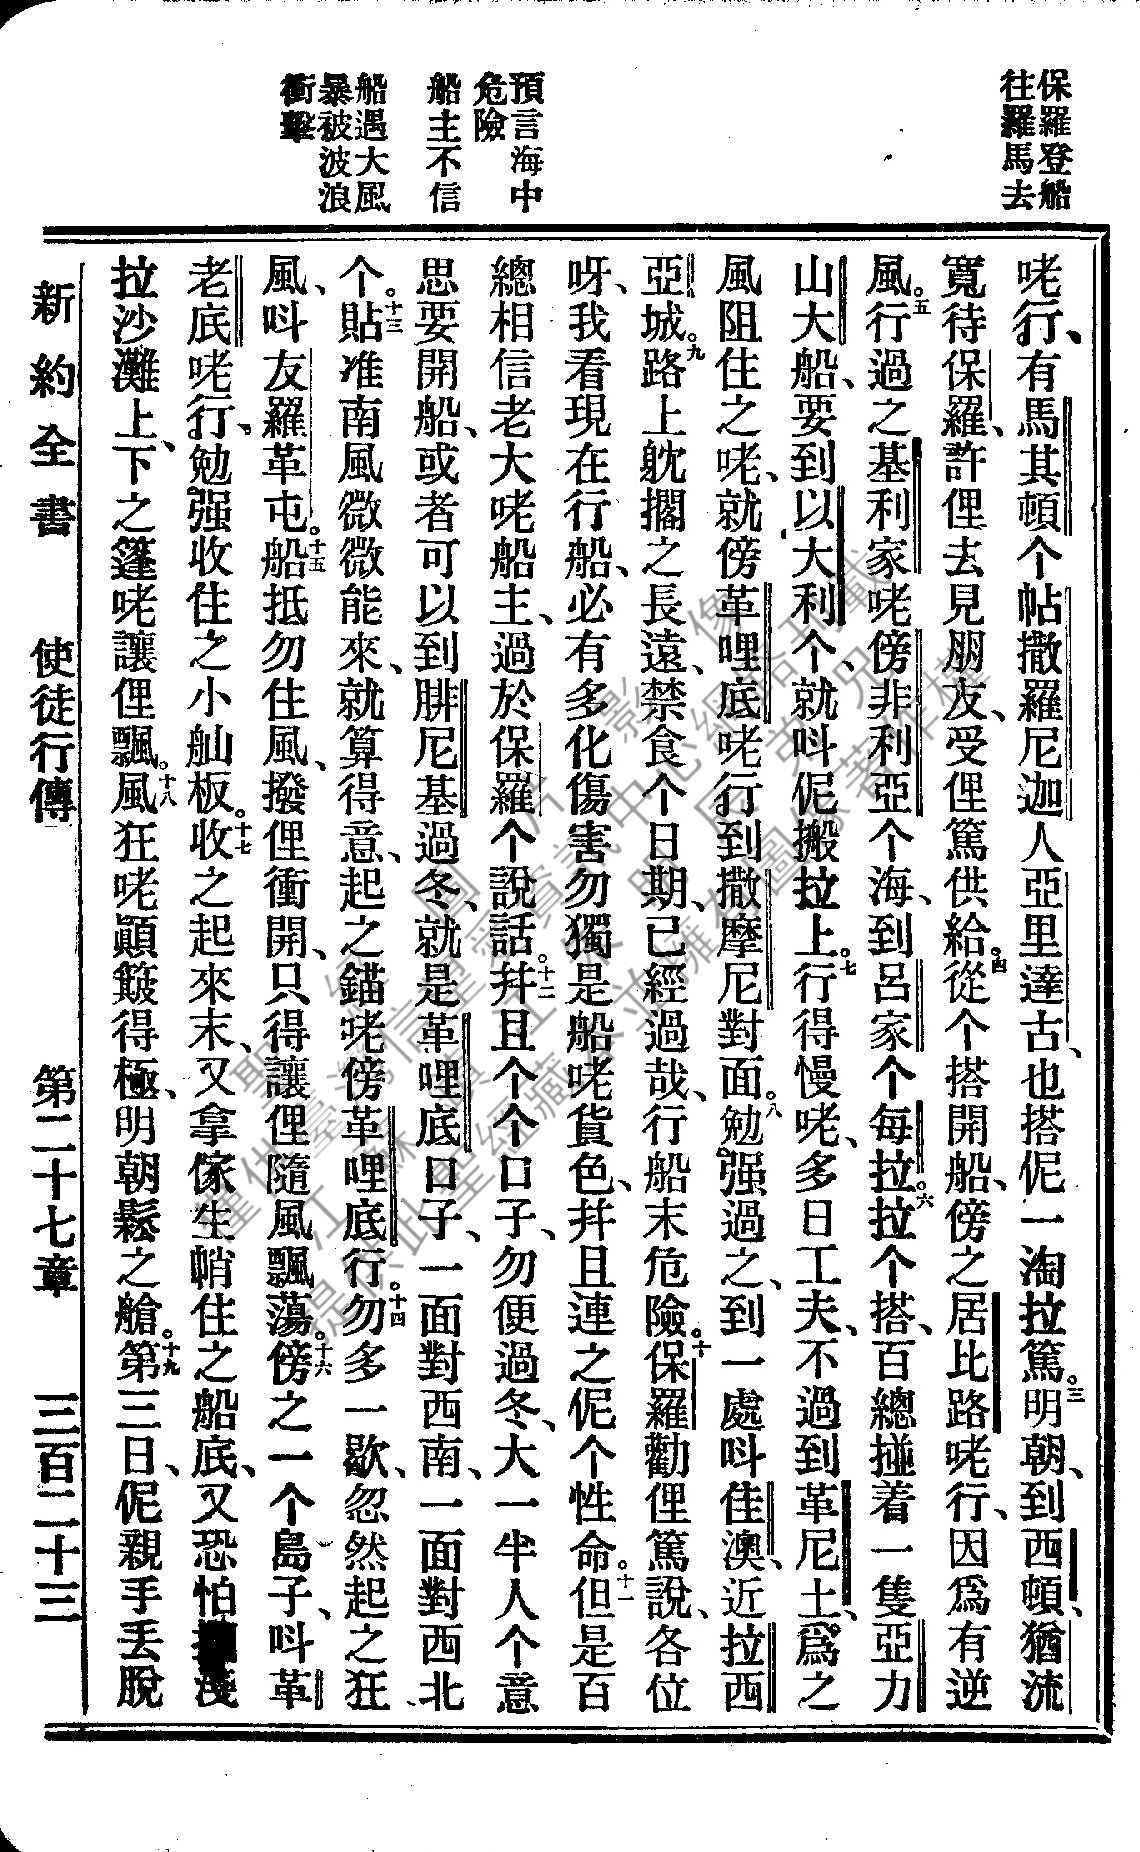 保羅登船
往羅馬去
預言海中
危險
船主不信
船遇大風
暴被波浪
衝擊
咾行、有馬其頓个帖撒羅尼迦人亞里達古、也搭伲一淘拉篤。三明朝、到西頓、猶流
寬待保羅、許俚去見朋友、受俚篤供給。四從个搭開船、傍之居比路咾行、因爲有逆
風。五行過之基利家咾傍非利亞个海、到呂家个每拉。六拉个搭、百總掽着一隻亞力
山大船、要到以大利个、就呌伲搬拉上。七行得慢咾、多日工夫、不過到革尼土、爲之
風阻住之咾、就傍革哩底咾行到撒摩尼對面。八勉强過之、到一處呌佳澳、近拉西
亞城。九路上躭擱之長遠、禁食个日期、已經過哉、行船末危險。十保羅勸俚篤說、各位
呀、我看現在行船、必有多化傷害勿獨是船咾貨色、幷且連之伲个性命。十一但是百
總相信老大咾船主、過於保羅个說話。十二幷且个个口子、勿便過冬、大一半人个意
思要開船、或者可以到腓尼基過冬、就是革哩底口子、一面對西南、一面對西北
个。十三貼准南風微微能來、就算得意、起之錨咾傍革哩底行。十四勿多一歇、忽然起之狂
風、呌友羅革屯。十五船抵勿住風、撥俚衝開、只得讓俚隨風飄蕩。十六傍之一个島子、呌革
老底咾行、勉强收住之小舢板。十七收之起來末、又拿傢生帩住之船底、又恐怕淺
拉沙灘上、下之篷咾讓俚飄。十八風狂咾顚簸得極、明朝鬆之艙。十九第三日、伲親手丢脫
新約全書 使徒行傳 第二十七章 三百二十三
聖經公會